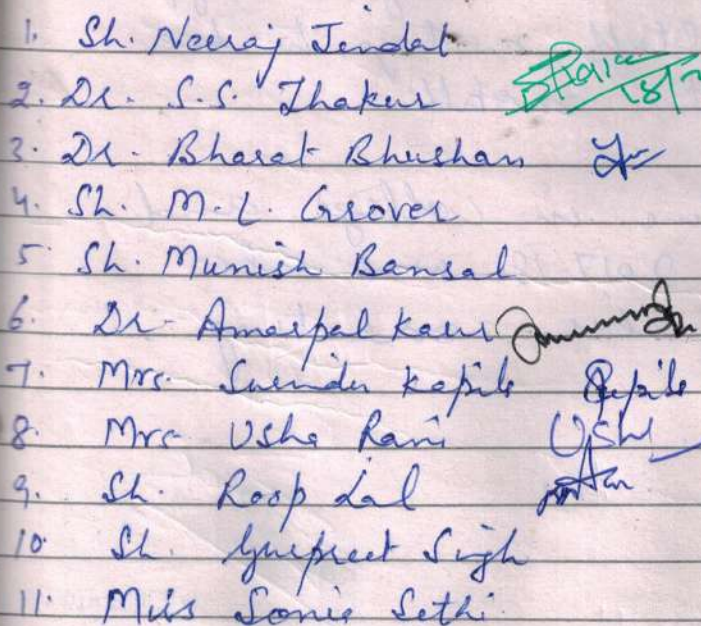 1. Sh. Neeraj Jindal
2. Dr. S.S. Thakur 18/
3. Dr. Bharat Bhushan
4. Sh. M.L. Grover
5. Sh. Munish Bansal
6. Dr. Amarpal Kaur
7. Mrs. Surinder Kapila Kapila
8. Mrs. Usha Rani Usha
9. Sh. Roop Lal
10. Sh. Gurpreet Singh
11. Miss Sonia Sethi.